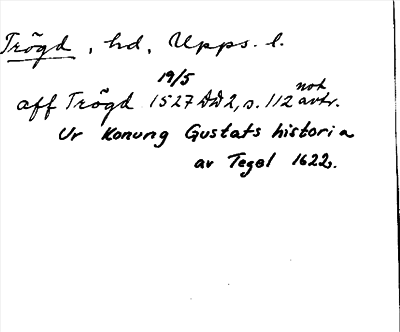 Trögd, hd, Upps. l.
19/5
aff Trögd 1527 DD2, s. 112 not avtr.
Ur Konung Gustafs historia
av Tegel 1622.